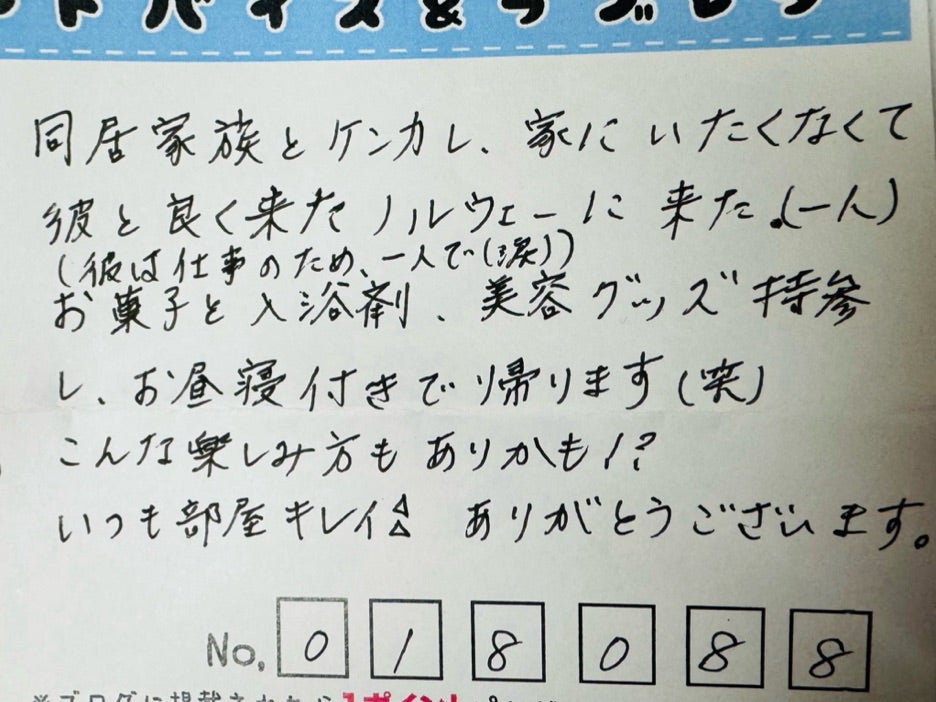 ドバイス&ラブレタ
同居家族とケンカし、家にいたくなくて
彼と良く来たノルウェーに来た。(一人)
(彼は仕事のため、一人で(涙))
お菓子と入浴剤、美容グッズ持参
し、お昼寝付きで帰ります(笑)
こんな楽しみ方もありかも!?
いつも部屋キレイ!! ありがとうございます。
No. 0 1 8 0 8 8
※ブログに掲載されたら1ポイント